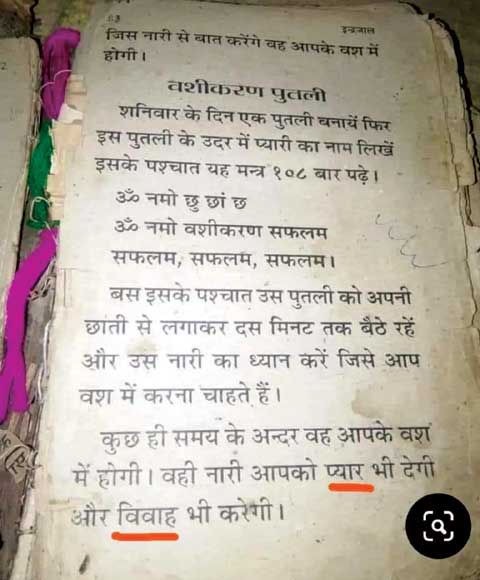 ८३ इन्द्रजाल
जिस नारी से बात करेंगे वह आपके वश में
होगी।
वशीकरण पुतली
शनिवार के दिन एक पुतली बनायें फिर
इस पुतली के उदर में प्यारी का नाम लिखें
इसके पश्चात यह मन्त्र १०८ बार पढ़े।
ॐ नमो छु छां छ
ॐ नमो वशीकरण सफलम
सफलम, सफलम, सफलम।
बस इसके पश्चात उस पुतली को अपनी
छाती से लगाकर दस मिनट तक बैठे रहें
और उस नारी का ध्यान करें जिसे आप
वश में करना चाहते हैं।
कुछ ही समय के अन्दर वह आपके वश
में होगी। वही नारी आपको प्यार भी देगी
और विवाह भी करेगी।